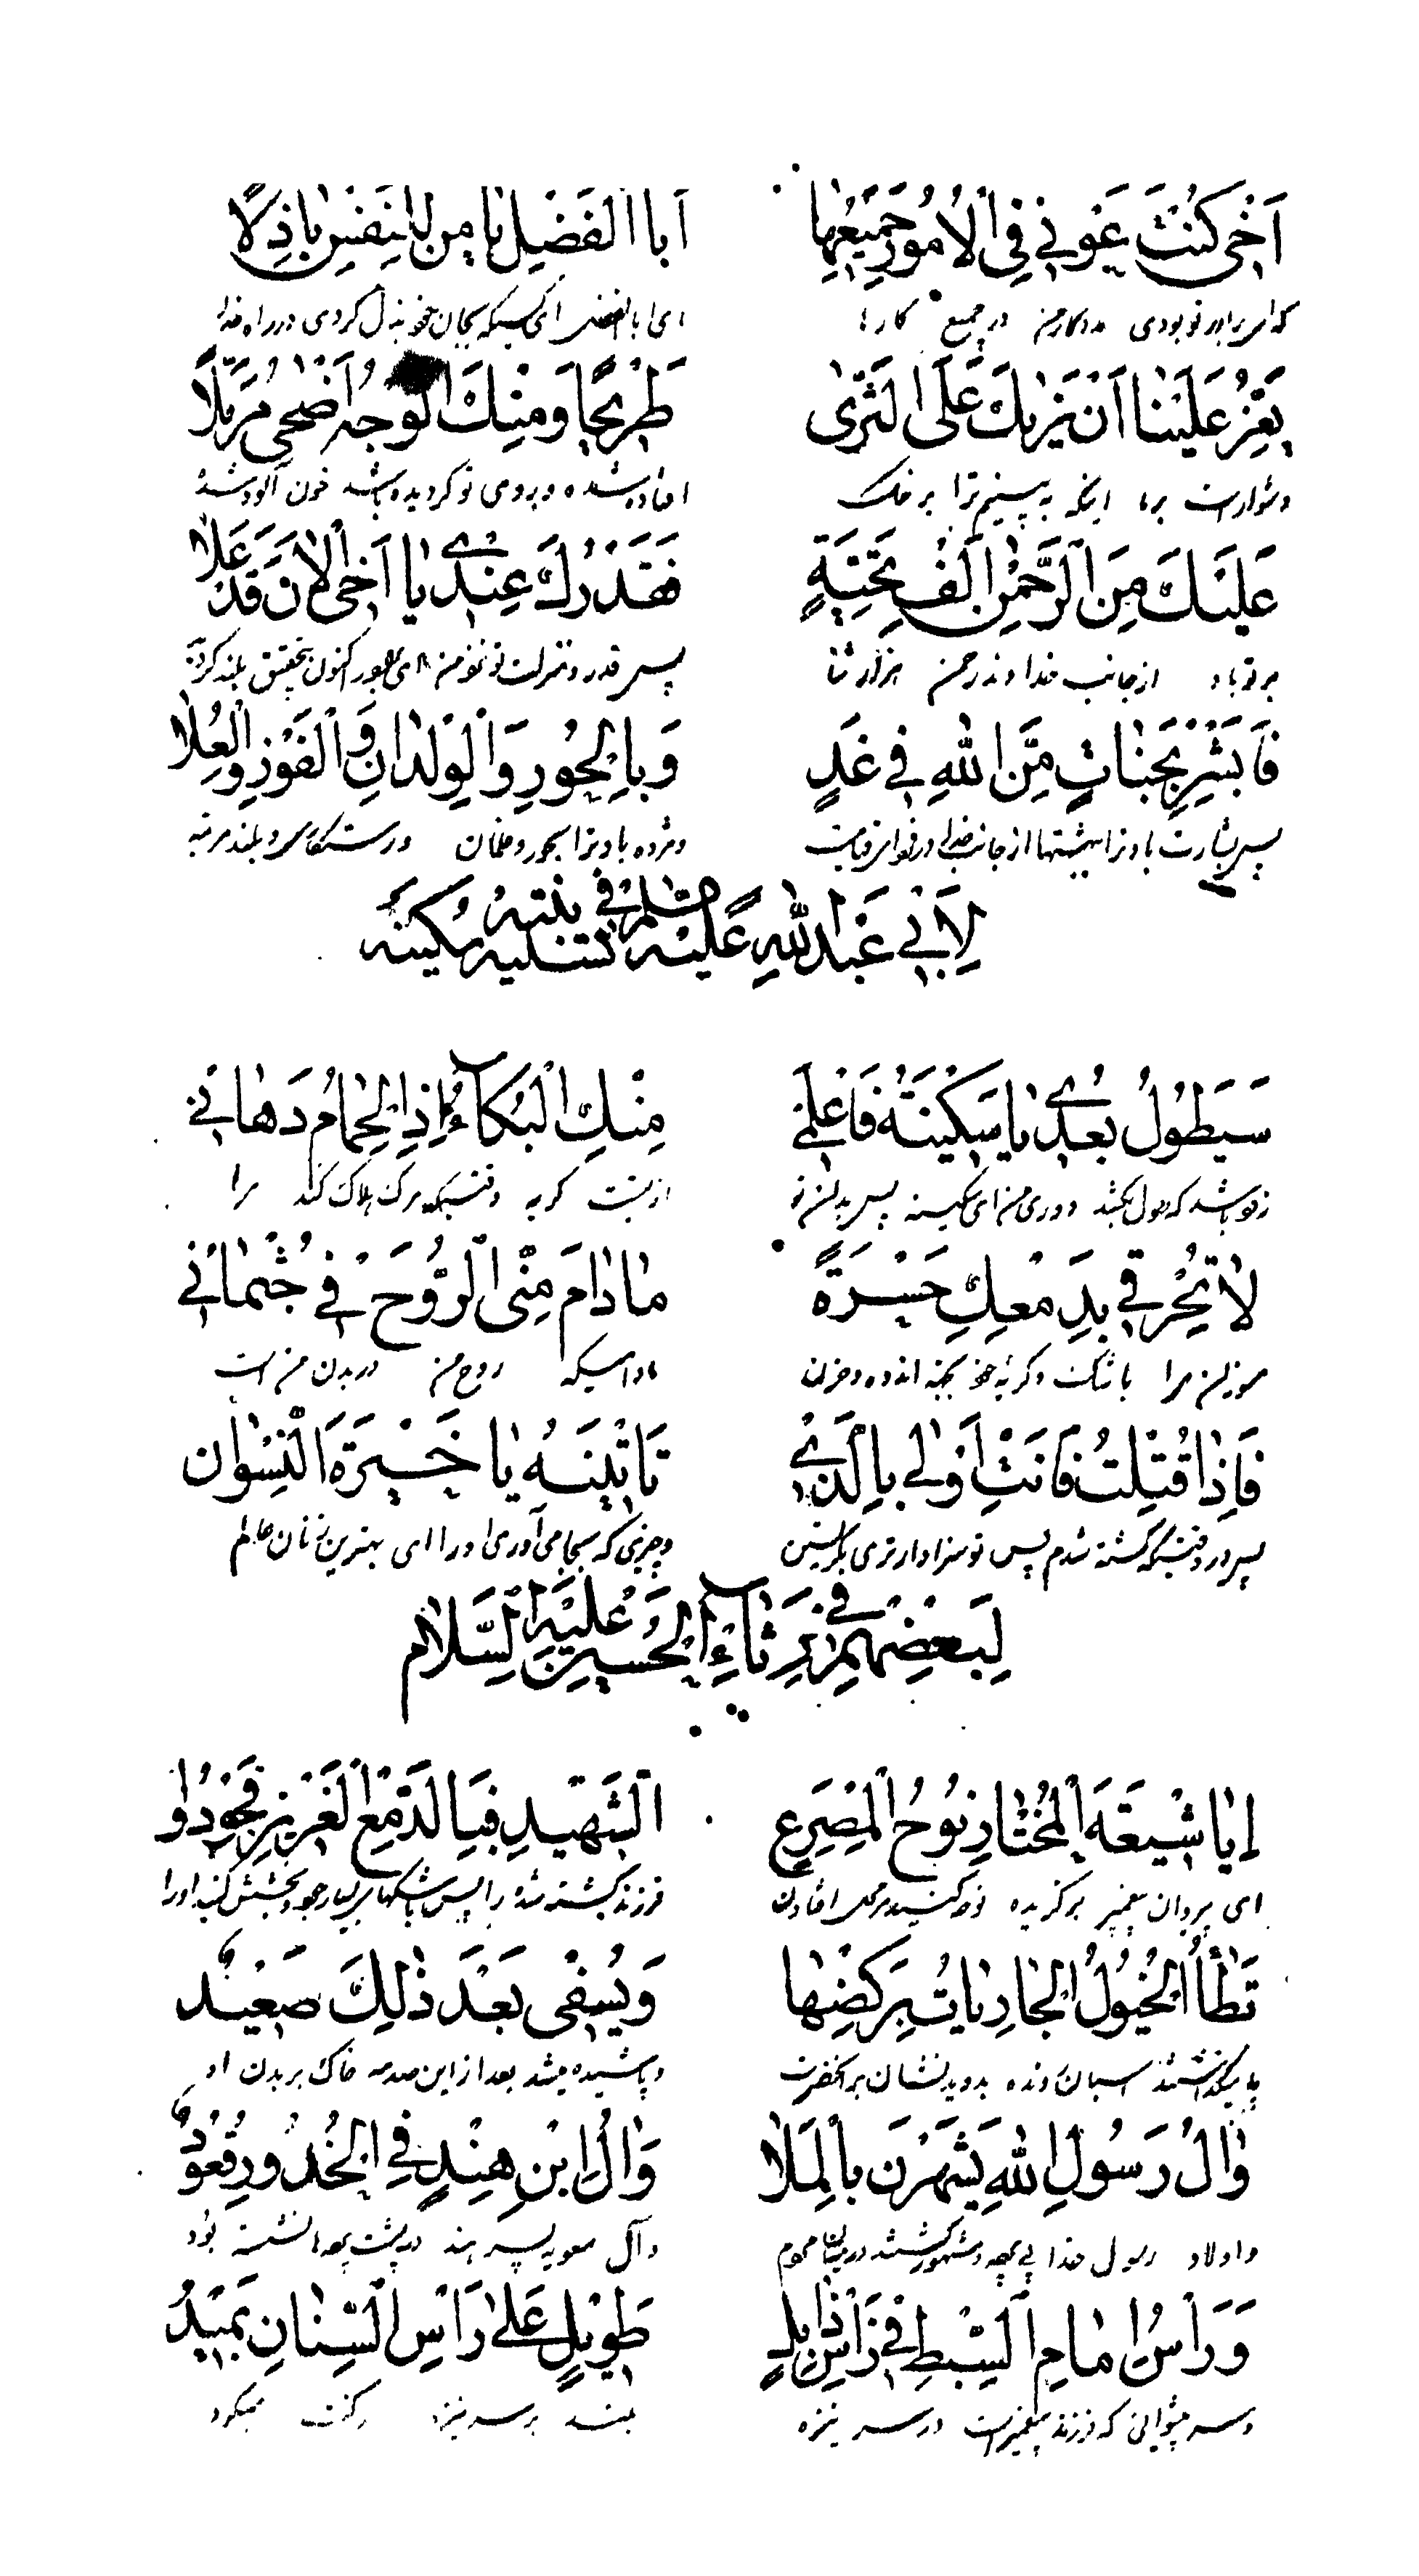 اَخی کُنْتَ عَوْنی فِی الْاُمُورِ جَمیعِها اَبَا الْفَضْلِ یا مَنْ لِلنَّفْسِ باذِلًا
که ای برادر تو بودی مددکار من در جمیع کارها ای ابالفضل ای کسیکه بجان خود بذل کردی در راه خدا
یَعِزُّ عَلَیْنا اَنْ نَریٰكَ عَلَی الثَّریٰ طَریحًا وَ مِنْكَ الْوَجْهُ اَضْحیٰ مُرَمَّلًا
دشوار است بر ما اینکه به بینیم ترا بر خاک افتاده شده و روی تو گردیده باشد خون آلود شده
عَلَیْكَ مِنَ الرَّحْمٰنِ اَلْفُ تَحِیَّةٍ فَقَدْرُكَ عِنْدی یا اَخی الْاٰنَ قَدْ عَلا
بر تو باد از جانب خداوند رحمن هزار ثنا پس قدر و منزلت تو نزد من ای برادر اکنون بتحقیق بلند گردید
فَابْشِرْ بِجَنّاتٍ مِنَ اللهِ فی غَدٍ وَ بِالْحُورِ وَ الْوِلْدانِ وَ الْفَوْزِ وَ الْعُلا
پس بشارت باد ترا ببهشتها از جانب خدا در فردای قیامت و مژده باد ترا بحور و غلمان و رستگاری و بلند مرتبه
لِاَبی عَبْدِ اللهِ عَلَیْهِ السَّلامُ فی تَسْلِیَةِ بِنْتِهِ سَکینَه
سَیَطُولُ بَعْدی یا سَکینَةُ فَاعْلَمی مِنْكِ الْبُکآءُ اِذِ الْحِمامُ دَهانی
زود باشد که طول بکشد دوری من ای سکینه پس بدان تو از تست گریه وقتیکه مرگ هلاک کند مرا
لا تُحْرِقی بِدَمْعِكِ حَسْرَةً ما دامَ مِنّی الرُّوحُ فی جُثْمانی
مسوزان مرا باشک و گریه خود بجهة اندوه و حزن مادامیکه روح من در بدن من است
فَاِذا قُتِلْتُ فَاَنْتِ اَوْلیٰ بِالَّذی تَاْتینَهُ یا خَیْرَةَ النِّسْوانِ
پس در وقتیکه کشته شدم پس تو سزاوارتری بگریستن و چیزی که بجا می‌آوری او را ای بهترین زنان عالم
لِبَعْضِهِمْ فی رِثآءِ الْحُسَیْنِ عَلَیْهِ السَّلامُ
اَیا شیعَةَ الْمُخْتارِ نُوحُ الْمَصْرَعِ الشَّهیدِ فَبِالدَّمْعِ الْغَزیرِ فَجُودُوا
ای پیروان پیغمبر برگزیده نوحه کنید بر محل افتادن فرزند کشته شده را پس باشکهای بسیار جود و بخشش کنید او را
تَطَاُ الْخُیُولُ الْجارِیاتُ بِرَکْضِها وَ یُسْفیٰ بَعْدَ ذٰلِكَ صَعیدٌ
پا میگذاشتند اسبان رونده بدویدنشان بر آنحضرت و پاشیده میشد بعد از این صدمه خاک بر بدن او
وَ اٰلُ رَسُولِ اللهِ یُشْهَرْنَ بِالْمَلا وَ اٰلُ ابْنِ هِنْدٍ فِی الْخُدُورِ قُعُودٌ
و اولاد رسول خدا بی پرده و مشهور گشتند در میان مردم و آل معویه پسر هند در پشت پرده‌ها نشسته بود
وَ رَاْسُ اِمامِ السِّبْطِ فی رَاْسِ ذابِلٍ طَویلٍ عَلیٰ رَاْسِ السِّنانِ یَمیدُ
و سر پیشوائی که فرزند پیغمبر است در سر نیزه بلند بر سر نیزه حرکت میکرد